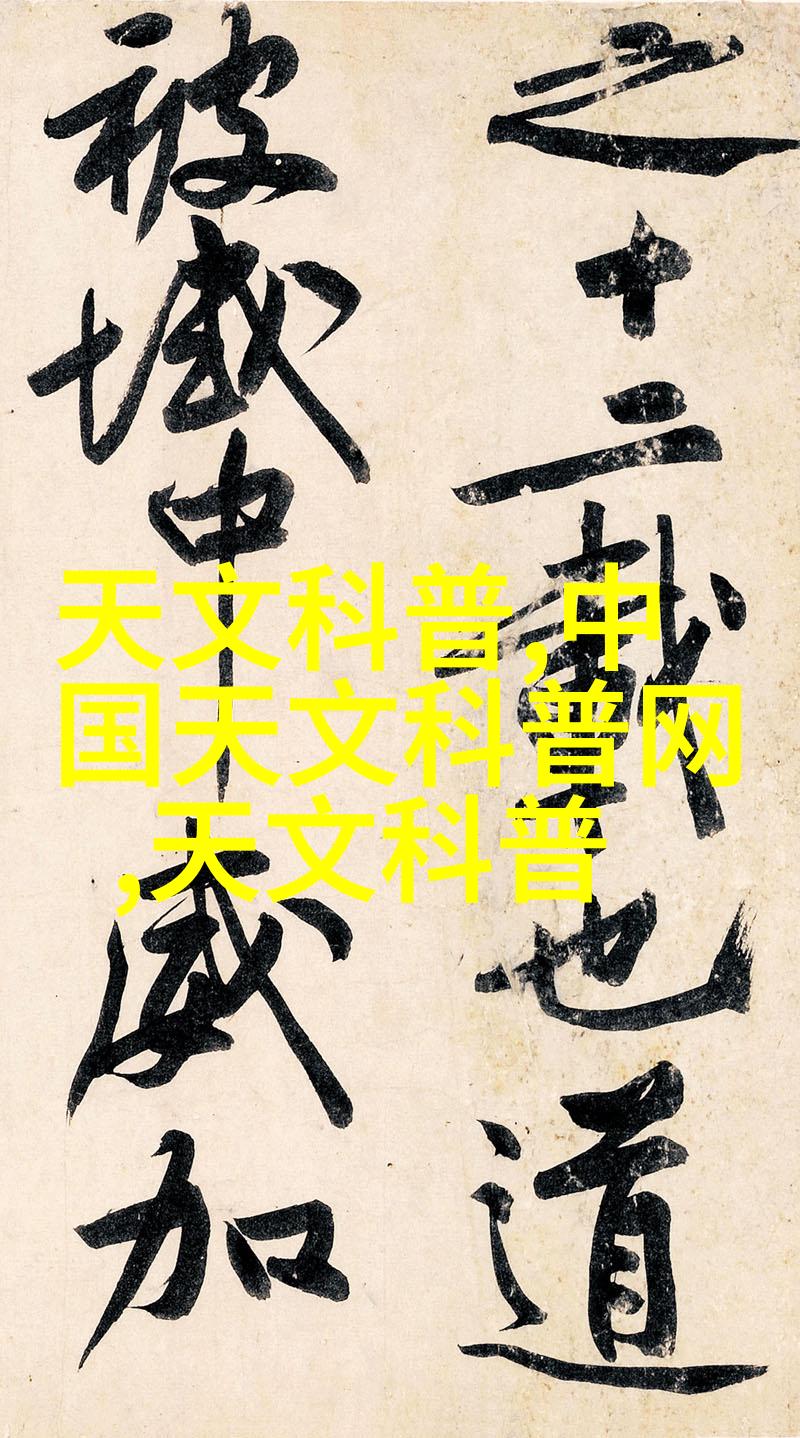 之十二載也道
被域中威加
天文科普,中
国天文科普网
,天文科普